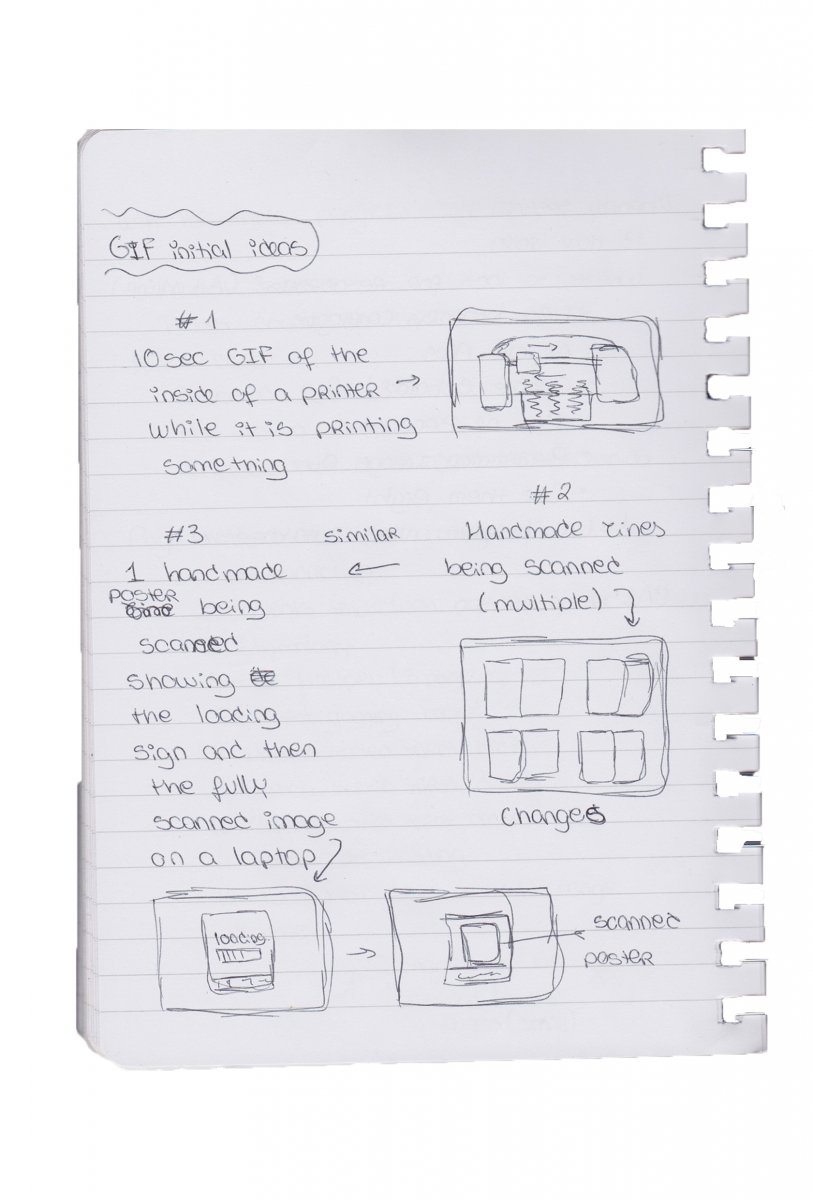 GIF initial ideas
#1
10sec GIF of the
inside of a printer →
while it is printing
something
#2
Handmade zines
being scanned
(multiple)
changes
similar
←
#3
1 handmade
poster being
scanned
showing
the loading
sign and then
the fully
scanned image
on a laptop
loading.
→
scanned
poster